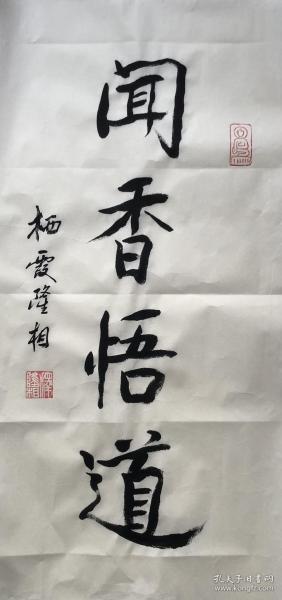 闻香悟道
栖霞隆相
孔夫子旧书网